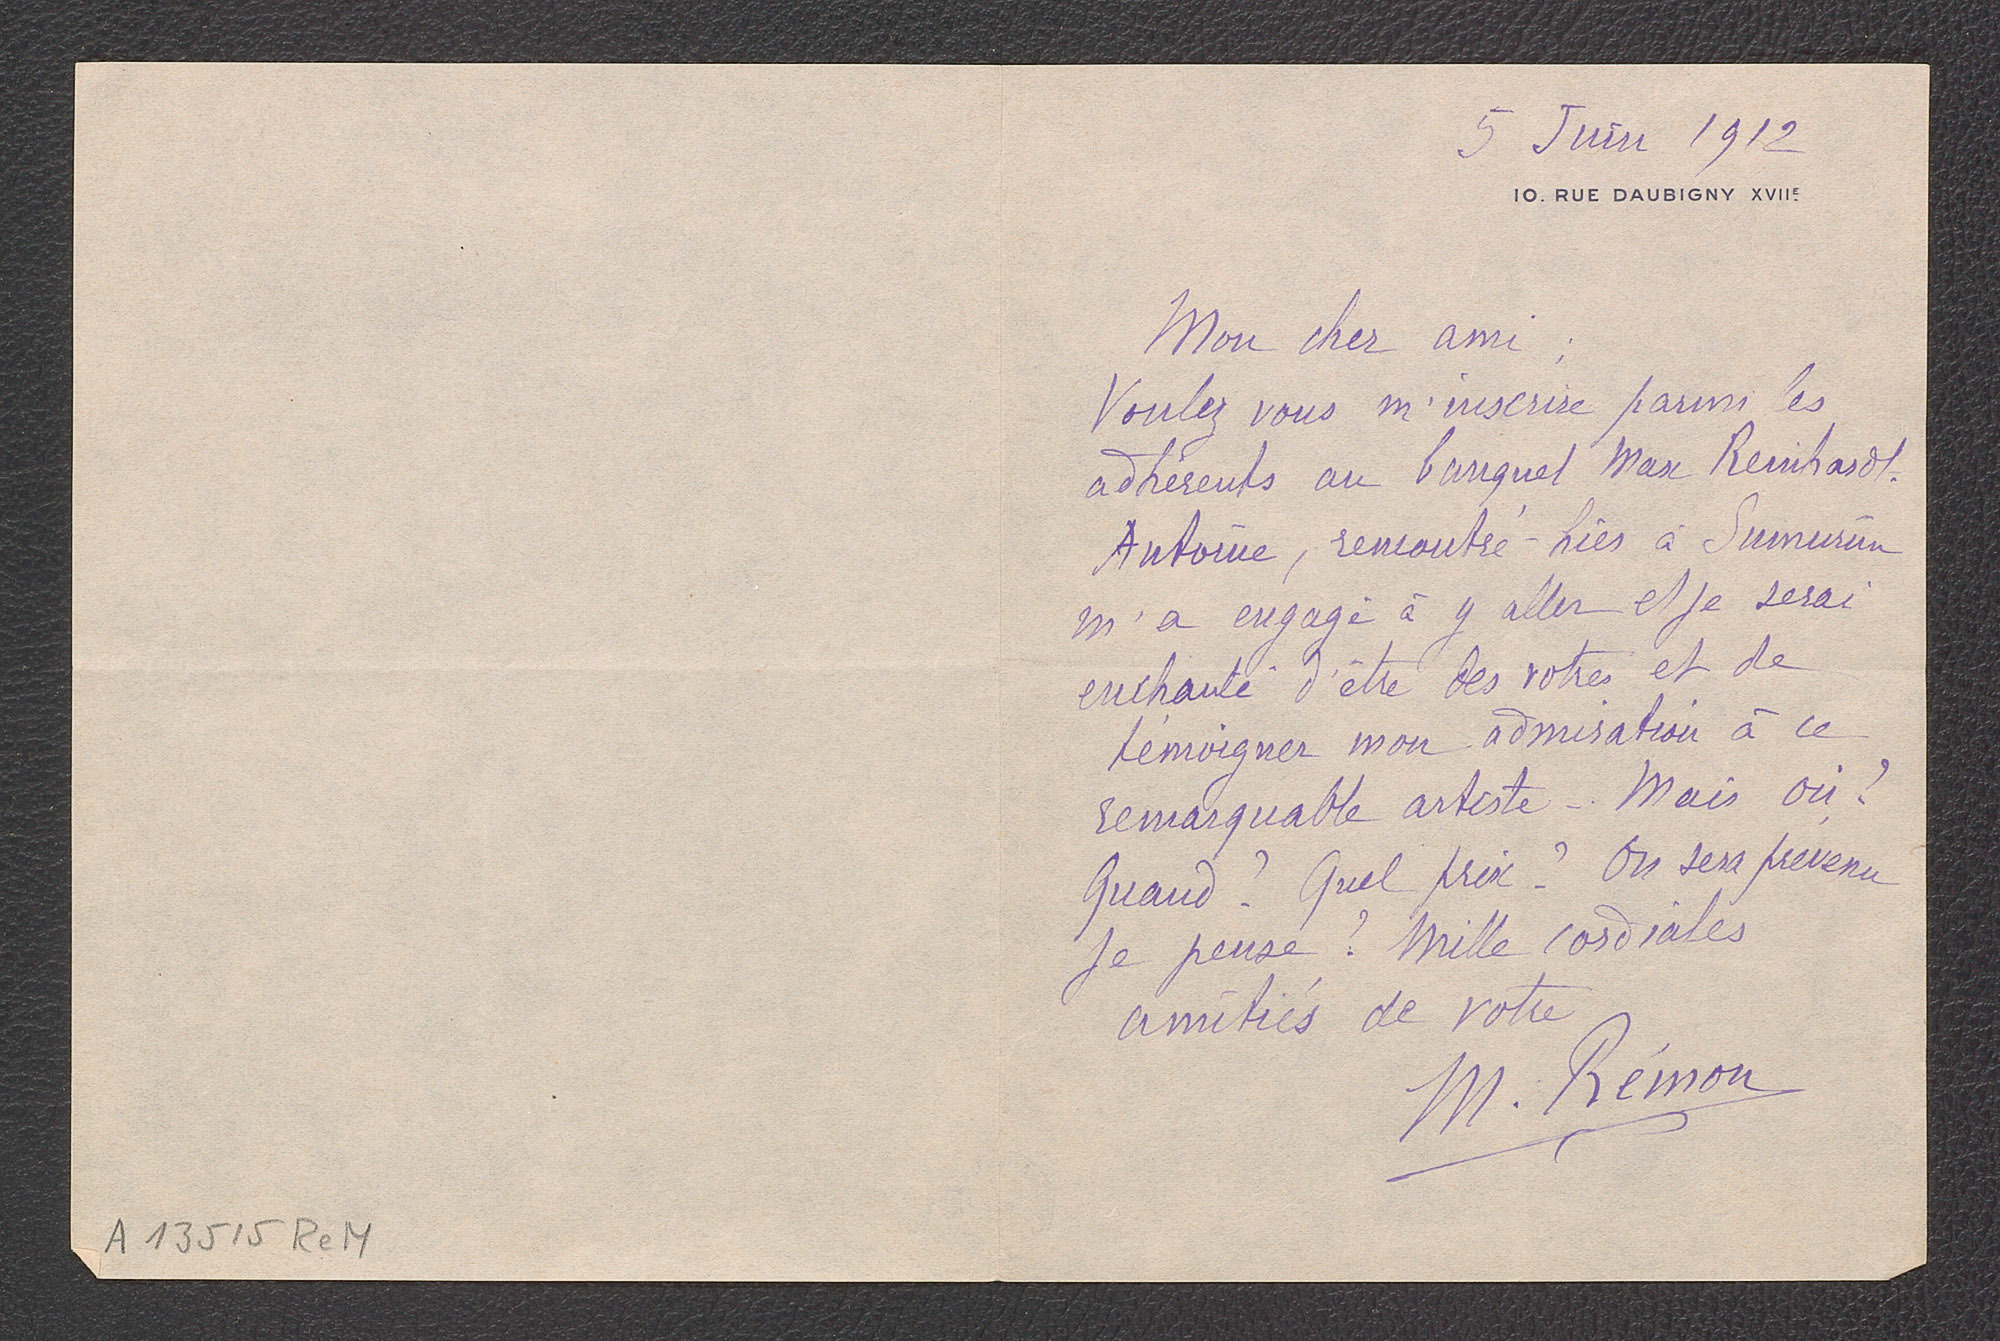 5 Juin 1912
10. RUE DAUBIGNY XVIIE
Mon cher ami ;
Voulez vous m'inscrire parmi les
adhérents au banquet Max Reinhardt.
Antoine, rencontré hier à Sumurûn
m'a engagé à y aller et je serai
enchanté d'être des votres et de
témoigner mon admiration à ce
remarquable artiste -. Mais où ?
Quand ? Quel prix ? On sera prévenu
je pense ? Mille cordiales
amitiés de votre
M. Rémon
A 13515 ReM